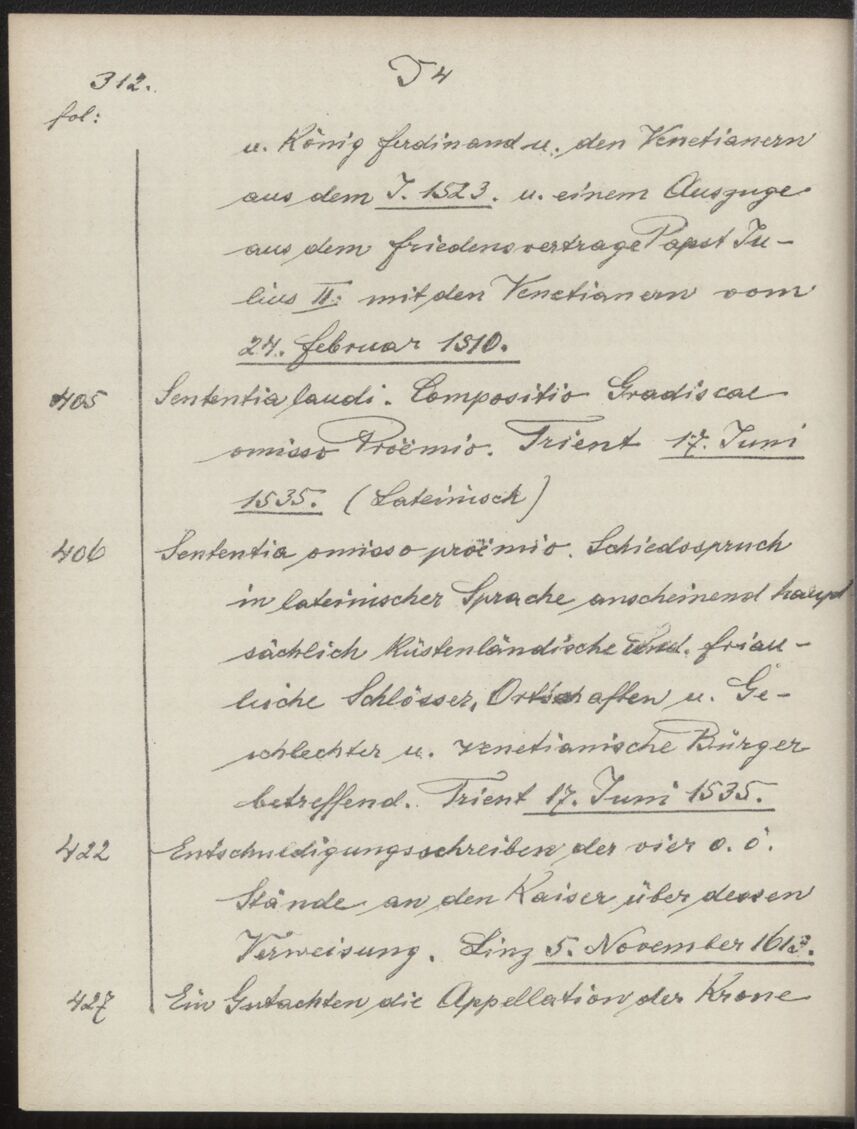 312.
T 4
fol:
u. König Ferdinand u. den Venetianern
aus dem J. 1523. u. einem Auszuge
aus dem Friedensvertrage Papst Ju-
lius II. mit den Venetianern vom
24. Februar 1510.
405 Sententia laudi. Compositio Gradiscae
omisso Proëmio. Trient 17. Juni
1535. (Lateinisch)
406 Sententia omisso proëmio. Schiedsspruch
in lateinischer Sprache anscheinend haupt
sächlich küstenländische und. friau-
lische Schlösser, Ortschaften u. Ge-
schlechter u. venetianische Bürger
betreffend. Trient 17. Juni 1535.
422 Entschuldigungsschreiben der vier o. ö.
Stände an den Kaiser über dessen
Verweisung. Linz 5. November 1613.
427 Ein Gutachten die Appellation der Krone